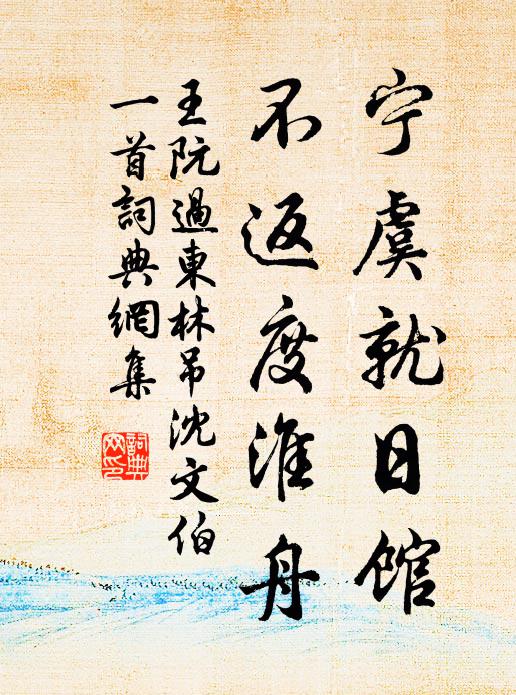 宁虞就日馆
不返度淮舟
王阮過東林吊沈文伯
一首詞典網集
詞典网印